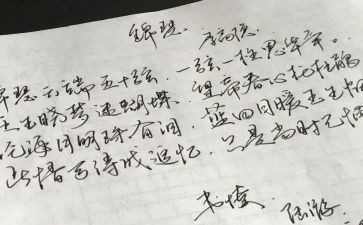 锦瑟 李商隐
锦瑟无端五十弦，一弦一柱思华年。
庄生晓梦迷蝴蝶，望帝春心托杜鹃
沧海月明珠有泪，蓝田日暖玉生烟
此情可待成追忆，只是当时已惘